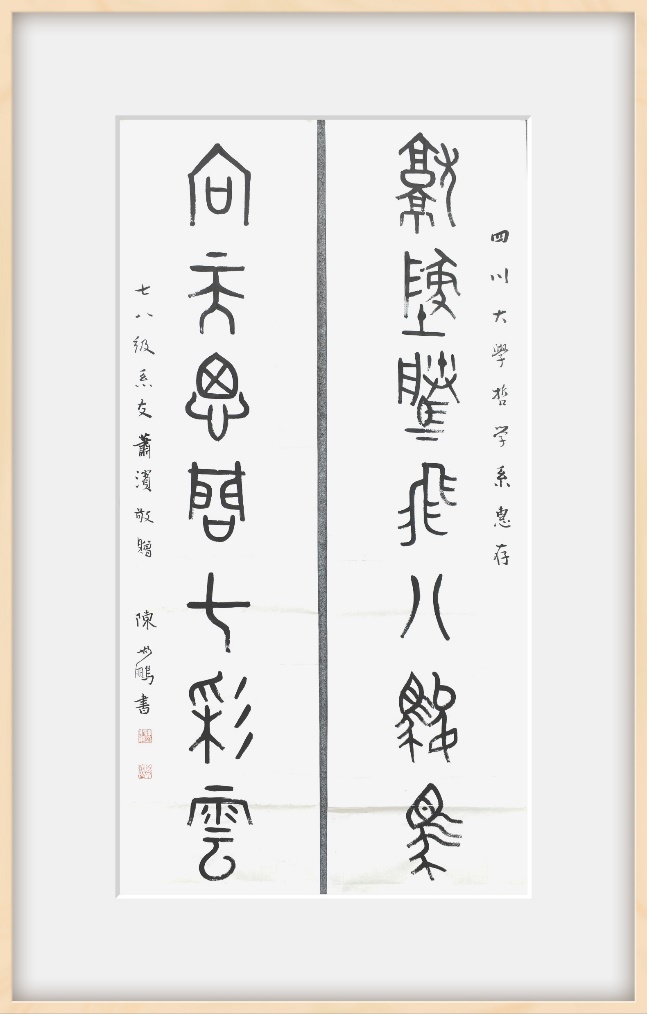 四川大學哲学系惠存
就墬騰飛八駿馬
向天思問七彩雲
七八級系友蕭濱敬贈 陳世鵬書